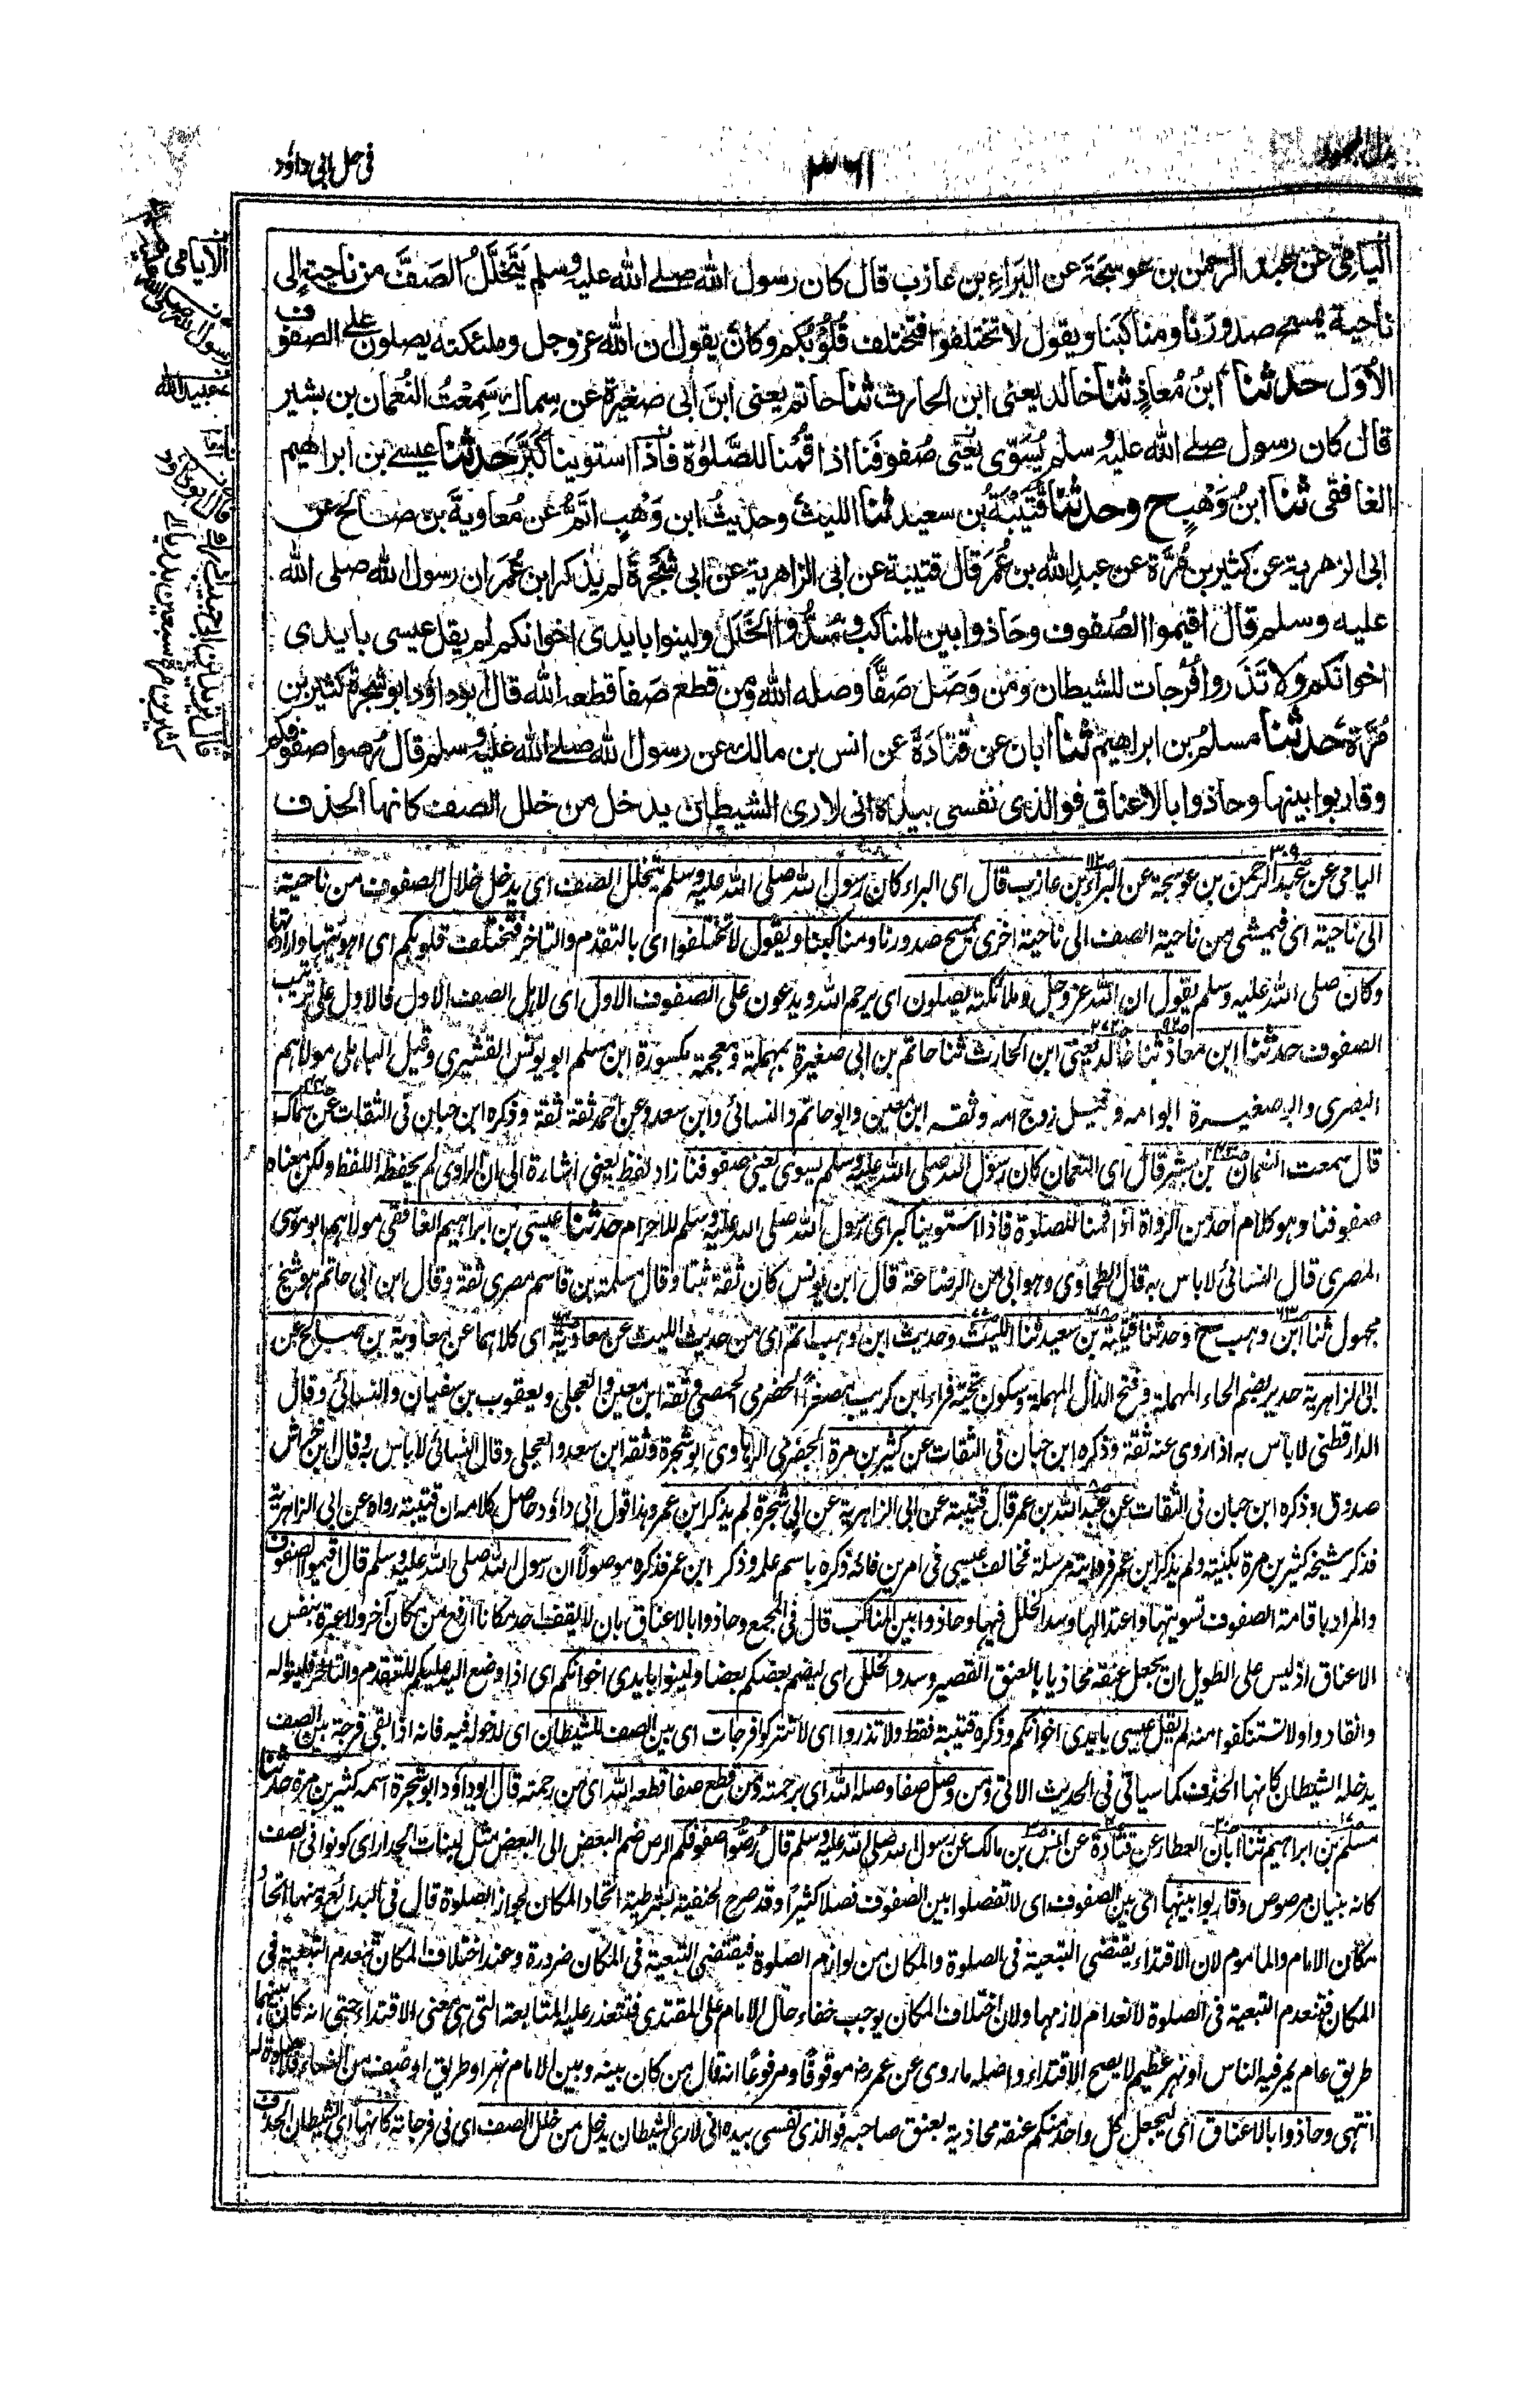 بذل المجهود
٣٦١
فى حل ابى داؤد
اليامي عن عبد الرحمن بن عوسجة عن البراء بن عازب قال كان رسول الله صلى الله عليه وسلم يتخلل الصف من ناحية الى
ناحية يمسح صدورنا ومناكبنا ويقول لا تختلفوا فتختلف قلوبكم وكان يقول ان الله عز وجل وملئكته يصلون على الصفوف
الأول حدثنا ابن معاذ ثنا خالد يعني ابن الحارث ثنا حاتم يعني ابن أبي صغيرة عن سماك سمعت النعمان بن بشير
قال كان رسول صلى الله عليه وسلم يسوي يعني صفوفنا اذا قمنا للصلوة فاذا استوينا كبر حدثنا عيسى بن ابراهيم
الغافقي ثنا ابن وهب ح وحدثنا قتيبة بن سعيد ثنا الليث وحديث ابن وهب اتم عن معاوية بن صالح عن
ابى الزهرية عن كثير بن مرة عن عبد الله بن عمر قال قتيبة عن ابى الزاهرية عن ابى شجرة لم يذكر ابن عمر ان رسول الله صلى الله
عليه وسلم قال اقيموا الصفوف وحاذوا بين المناكب وسدوا الخلل ولينوا بايدى اخوانكم لم يقل عيسى بايدى
اخوانكم ولا تذروا فرجات للشيطان ومن وصل صفًا وصله الله ومن قطع صفا قطعه الله قال ابوداؤد ابو شجرة كثير بن
مرة حدثنا مسلم بن ابراهيم ثنا ابان عن قتادة عن انس بن مالك عن رسول الله صلى الله عليه وسلم قال رصوا صفوفكم
وقاربوا بينها وحاذوا بالاعناق فوالذى نفسى بيده انى لارى الشيطان يدخل من خلل الصف كانها الحذف
اليامى عن عبد الرحمن بن عوسجة عن البراء بن عازب قال اى البراء كان رسول الله صلى الله عليه وسلم يتخلل الصف اى يدخل خلال الصفوف من ناحية
الى ناحية اى فيمشى من ناحية الصف الى ناحية اخرى يمسح صدورنا ومناكبنا ويقول لا تختلفوا اى بالتقدم والتاخر فتختلف قلوبكم اى اهويتها واراداتها
وكان صلى الله عليه وسلم يقول ان الله عز وجل وملائكته يصلون اى يرحم الله ويدعون على الصفوف الاول اى لاهل الصف الاول فالاول على ترتيب
الصفوف حدثنا ابن معاذ ثنا خالد يعنى ابن الحارث ثنا حاتم بن ابى صغيرة بمهملة ومعجمة مكسورة ابن مسلم ابو يونس القشيرى وقيل الباهلى مولاهم
البصرى وابو صغيرة ابو امه وقيل زوج امه وثقه ابن معين وابو حاتم والنسائى وابن سعد وعن احمد ثقة ثقة وذكره ابن حبان فى الثقات عن سماك
قال سمعت النعمان بن بشير قال اى النعمان كان رسول الله صلى الله عليه وسلم يسوى يعنى صفوفنا زاد لفظ يعنى اشارة الى ان الراوى لم يحفظ اللفظ ولكن معناه
صفوفنا وهو كلام احد من الرواة اذا قمنا للصلوة فاذا استوينا كبر اى رسول الله صلى الله عليه وسلم للاحرام حدثنا عيسى بن ابراهيم الغافقى مولاهم ابو موسى
المصرى قال النسائى لا باس به قال الطحاوى وهو ابى من الرضاعة قال ابن يونس كان ثقة ثبتا وقال سلمة بن قاسم مصرى ثقة وقال ابن ابى حاتم هو شيخ
مجهول ثنا ابن وهب ح وحدثنا قتيبة بن سعيد ثنا الليث وحديث ابن وهب اتم اى من حديث الليث عن معاوية اى كلاهما عن معاوية بن صالح عن
ابى الزاهرية حدير بضم الحاء المهملة وفتح الدال المهملة وسكون تحتية فراء ابن كريب مصغرا الحضرمى الحمصى وثقه ابن معين والعجلى ويعقوب بن سفيان والنسائى وقال
الدارقطنى لا باس به اذا روى عنه ثقة وذكره ابن حبان فى الثقات عن كثير بن مرة الحضرمى الرهاوى ابو شجرة وثقه ابن سعد والعجلى وقال النسائى لا باس به وقال ابن خراش
صدوق وذكره ابن حبان فى الثقات عن عبد الله بن عمر قال قتيبة عن ابى الزاهرية عن ابى شجرة لم يذكر ابن عمر وهذا قول ابى داؤد حاصل كلامه ان قتيبة رواه عن ابى الزاهرية
فذكر شيخه كثير بن مرة بكنيته ولم يذكر ابن عمر فروايته مرسلة فخالف عيسى فى امرين فانه ذكره باسم علمه وذكر ابن عمر فذكره موصولا ان رسول الله صلى الله عليه وسلم قال اقيموا الصفوف
والمراد باقامة الصفوف تسويتها واعتدالها وسد الخلل فيها وحاذوا بين المناكب قال فى المجمع وحاذوا بالاعناق بان لا يقف احد مكانا ارفع من مكان آخر ولا عبرة بنفس
الاعناق اذ ليس على الطويل ان يجعل عنقه محاذيا بالعنق القصير وسدوا الخلل اى ليضم بعضكم بعضا ولينوا بايدى اخوانكم اى اذا وضع اليد عليكم للتقدم والتاخر فلينوا له
وانقادوا ولا تستنكفوا منه لم يقل عيسى بايدى اخوانكم وذكره قتيبة فقط ولا تذروا اى لا تتركوا فرجات اى بين الصف للشيطان اى لدخوله فيه فانه اذا بقى فرجة بين الصف
يدخله الشيطان كانها الحذف كما سياتى فى الحديث الآتى ومن وصل صفا وصله الله اى برحمته ومن قطع صفا قطعه الله اى من رحمته قال ابوداؤد ابو شجرة اسمه كثير بن مرة حدثنا
مسلم بن ابراهيم ثنا ابان العطار عن قتادة عن انس بن مالك عن رسول الله صلى الله عليه وسلم قال رصوا صفوفكم الرص ضم البعض الى البعض مثل لبنات الجدار اى كونوا فى الصف
كانه بنيان مرصوص وقاربوا بينها اى بين الصفوف اى لا تفصلوا بين الصفوف فصلا كثيرا وقد صرح الحنفية بشرطية اتحاد المكان لجواز الصلوة قال فى البدائع ومنها اتحاد
مكان الامام والماموم لان الاقتداء يقتضى التبعية فى الصلوة والمكان من لوازم الصلوة فيقتضى التبعية فى المكان ضرورة وعند اختلاف المكان تنعدم التبعية فى
المكان فتنعدم التبعية فى الصلوة لانعدام لازمها ولان اختلاف المكان يوجب خفاء حال الامام على المقتدى فتتعذر عليه المتابعة التى هى معنى الاقتداء حتى انه كان بينهما
طريق عام يمر فيه الناس او نهر عظيم لا يصح الاقتداء واصله ما روى عن عمر رض موقوفا ومرفوعا انه قال من كان بينه وبين الامام نهر او طريق او صف من النساء فلا صلوة له
انتهى وحاذوا بالاعناق اى ليجعل كل واحد منكم عنقه محاذية بعنق صاحبه فوالذى نفسى بيده انى لارى الشيطان يدخل من خلل الصف اى فى فرجاته كانها اى الشيطان الحذف
الايامى
عبيد الله